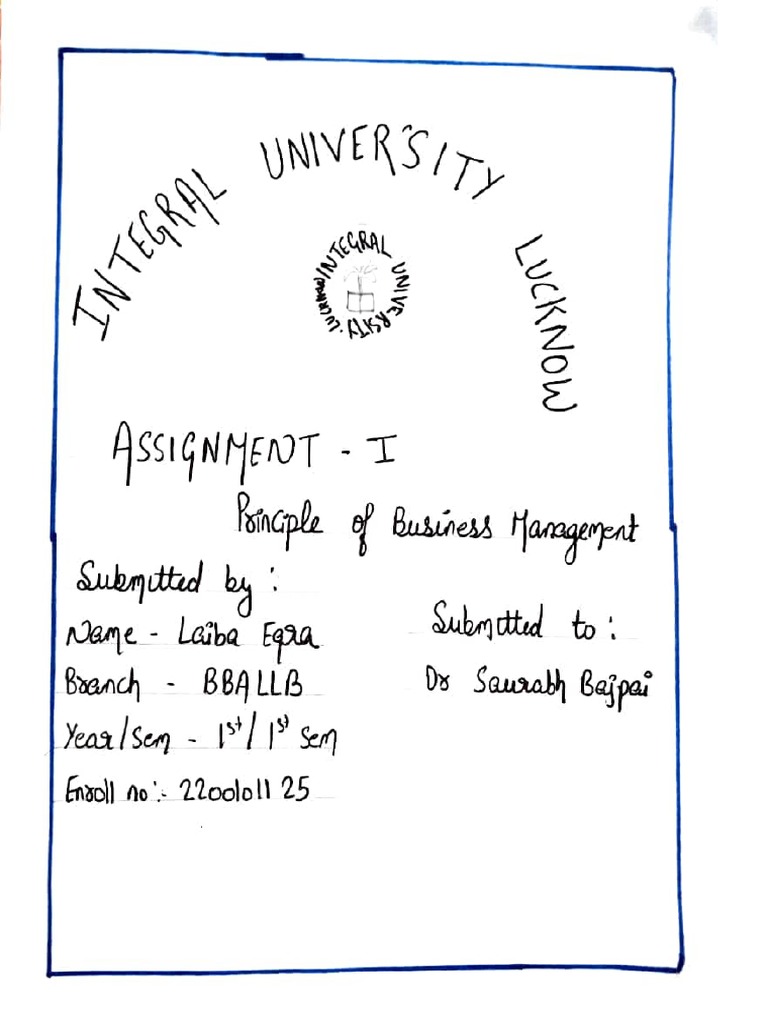 INTEGRAL UNIVERSITY LUCKNOW
INTEGRAL UNIVERSITY. LUCKNOW
ASSIGNMENT - I
Principle of Business Management
Submitted by :
Name - Laiba Eqra
Branch - BBALLB
Year/Sem - 1st/ 1st Sem
Enroll no:- 2200101125
Submitted to :
Dr Saurabh Bajpai